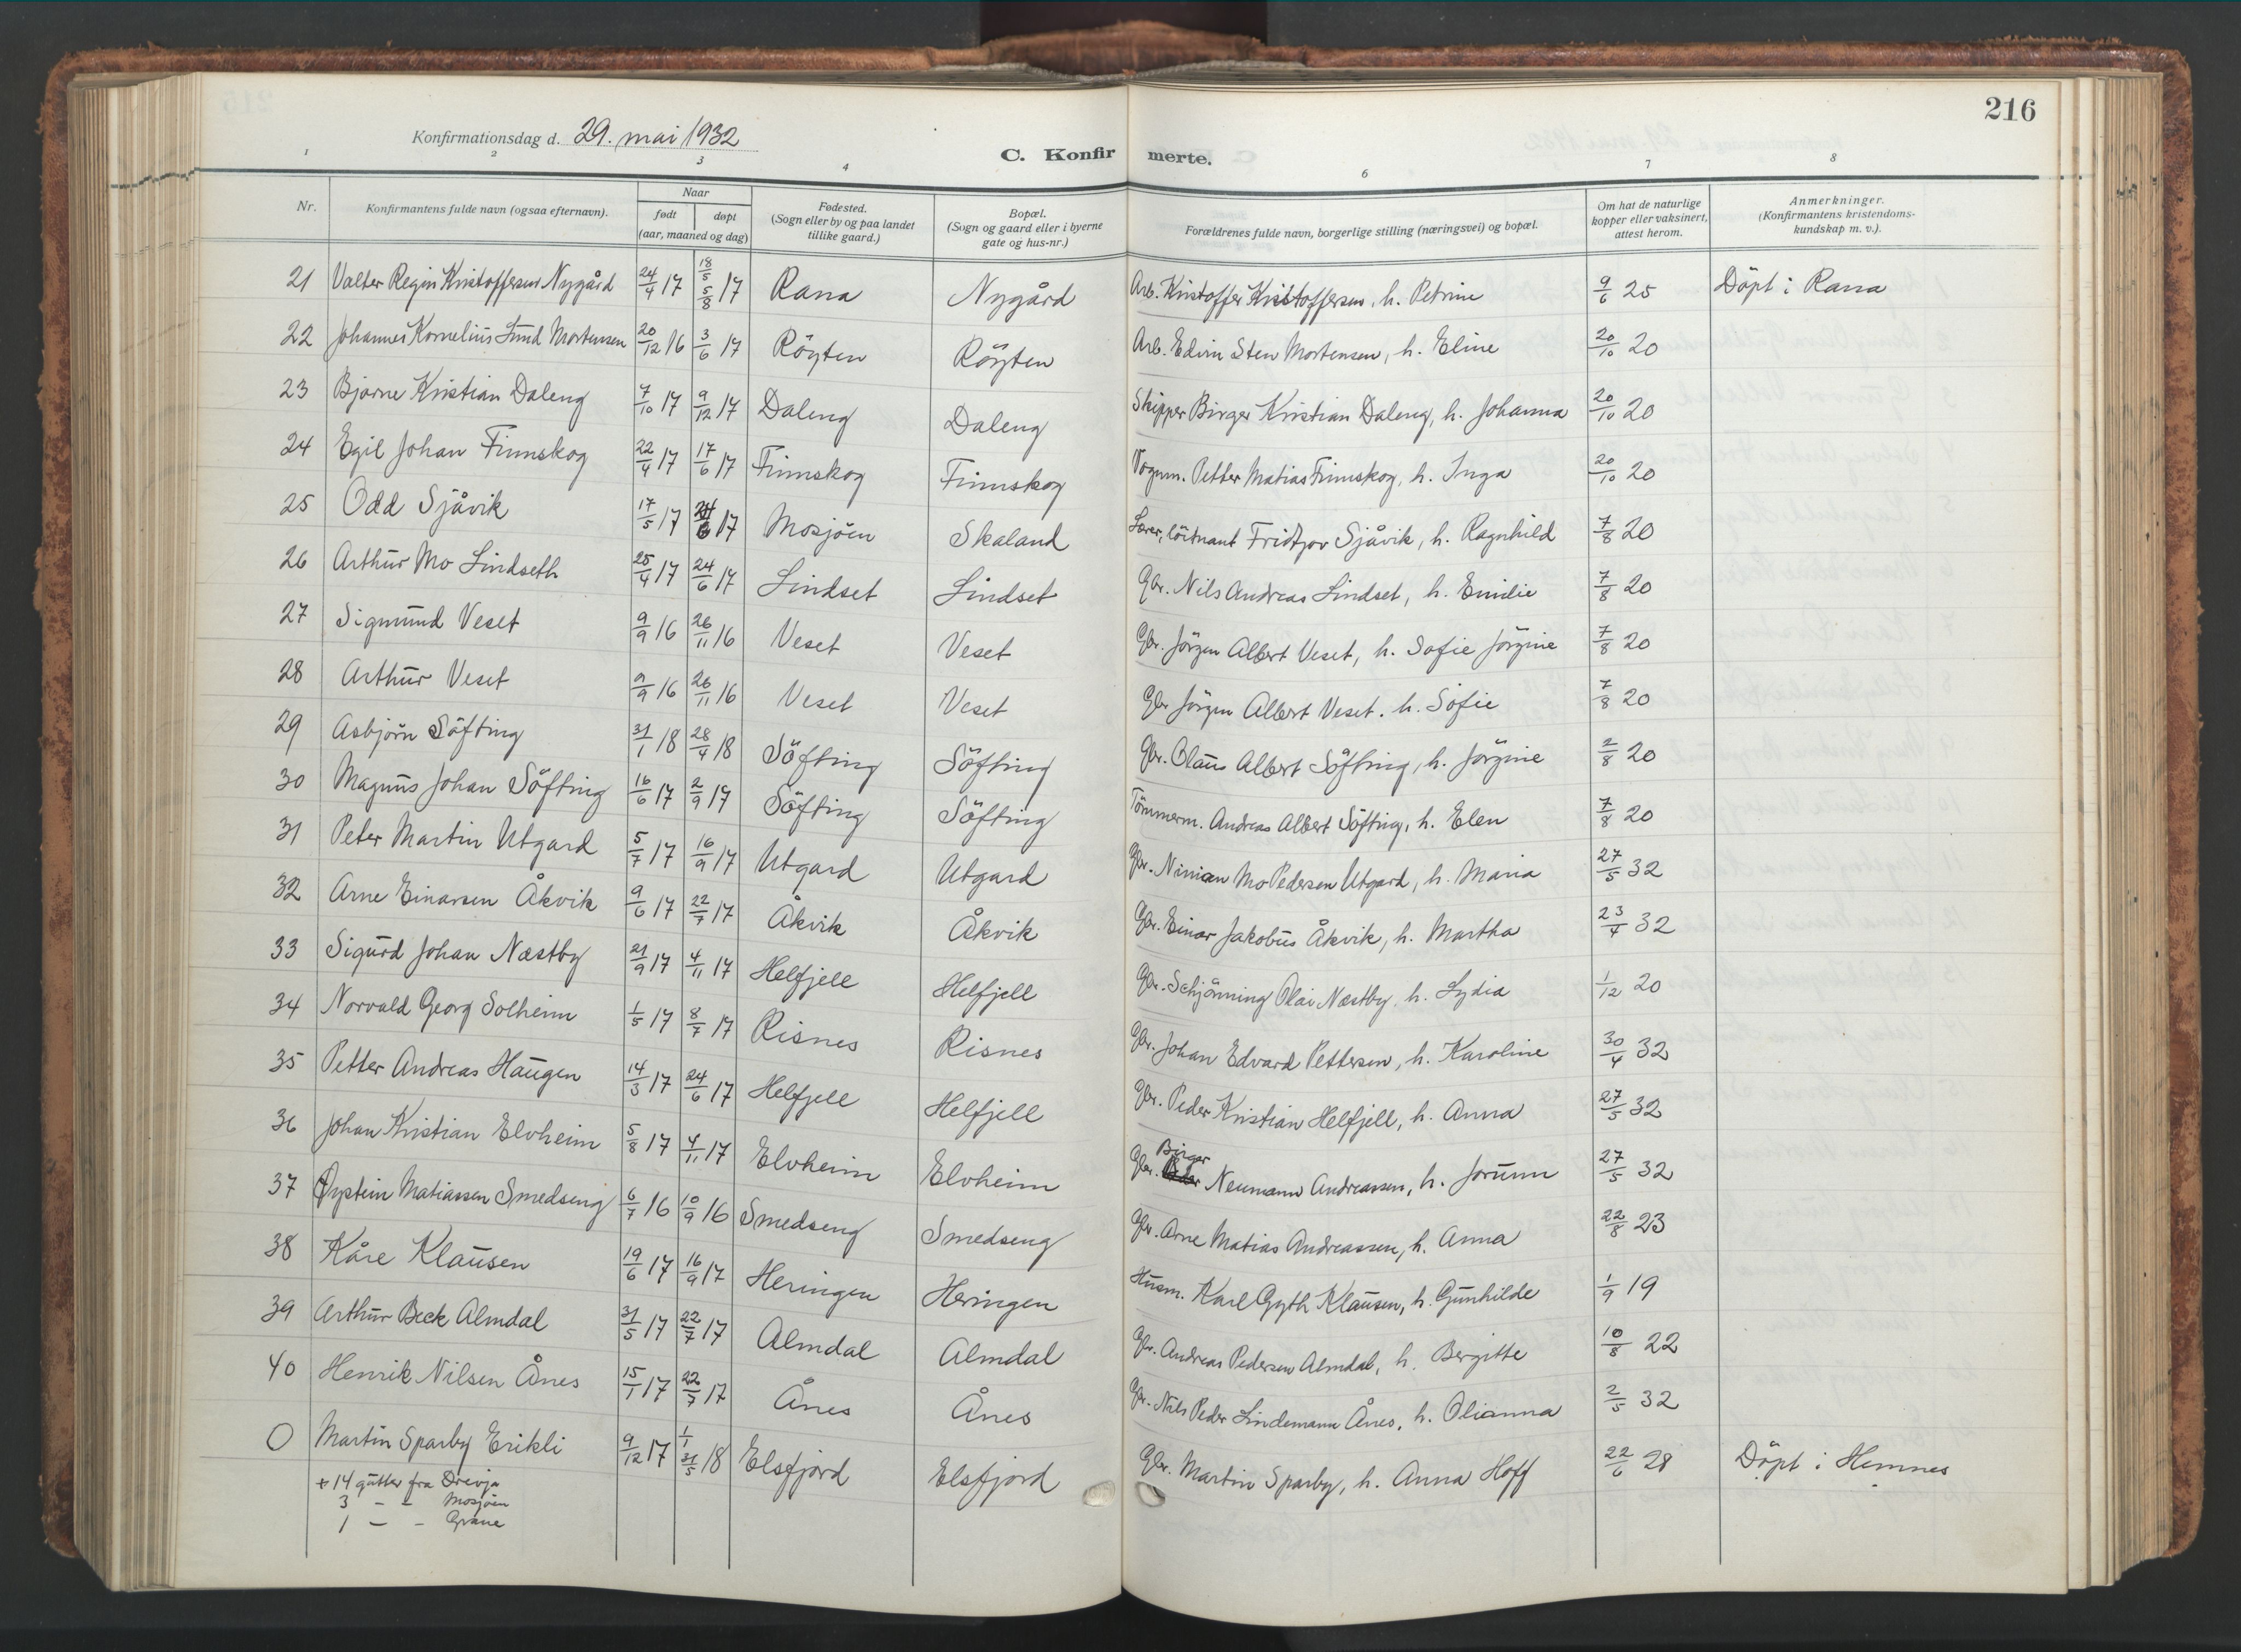 216
Konfirmationsdag d. 29. mai 1932
C. Konfirmerte.
1 2 3 4 6 7 8
Nr. Konfirmantens fulde navn (ogsaa efternavn). Naar født døpt (aar, maaned og dag) Fødested. (Sogn eller by og paa landet tillike gaard.) Bopæl. (Sogn og gaard eller i byerne gate og hus-nr.) Forældrenes fulde navn, borgerlige stilling (næringsvei) og bopæl. Om hat de naturlige kopper eller vaksinert, attest herom. Anmerkninger. (Konfirmantens kristendomskundskap m. v.).
21 Valter Regin Kristoffersen Nygård 24/4 17 18/5 5/8 17 Rana Nygård Arb. Kristoffer Kristoffersen, h. Petrine 9/6 25 Döpt i Rana
22 Johannes Kornelius Lund Mortensen 20/12 16 3/6 17 Röyten Röyten Arb. Edvin Sten Mortensen, h. Eline 20/10 20
23 Bjarne Kristian Daleng 7/10 17 9/12 17 Daleng Daleng Skipper Birger Kristian Daleng, h. Johanna 20/10 20
24 Egil Johan Finnskog 22/4 17 17/6 17 Finnskog Finnskog Vognm. Petter Matias Finnskog, h. Inga 20/10 20
25 Odd Sjåvik 17/5 17 24/6 17 Mosjöen Skaland Lærer, löitnant Fridtjov Sjåvik, h. Ragnhild 7/8 20
26 Arthur Mo Lindseth 25/4 17 24/6 17 Lindset Lindset Gbr. Nils Andreas Lindset, h. Emilie 7/8 20
27 Sigmund Veset 9/9 16 26/11 16 Veset Veset Gbr. Jörgen Albert Veset, h. Sofie Jörgine 7/8 20
28 Arthur Veset 9/9 16 26/11 16 Veset Veset Gbr Jörgen Albert Veset. h. Sofie 7/8 20
29 Asbjörn Söfting 31/1 18 28/4 18 Söfting Söfting Gbr. Olaus Albert Söfting, h. Jörgine 2/8 20
30 Magnus Johan Söfting 16/6 17 2/9 17 Söfting Söfting Tömmerm. Andreas Albert Söfting, h. Elen 7/8 20
31 Peter Martin Utgard 5/7 17 16/9 17 Utgard Utgard Gbr. Ninian Mo Pedersen Utgard, h. Maria 27/5 32
32 Arne Einarsen Åkvik 9/6 17 22/7 17 Åkvik Åkvik Gbr. Einar Jakobus Åkvik, h. Martha 23/4 32
33 Sigurd Johan Næstby 21/9 17 4/11 17 Helfjell Helfjell Gbr. Schjönning Olai Næstby, h. Lydia 1/12 20
34 Norvald Georg Solheim 1/5 17 8/7 17 Risnes Risnes Gbr. Johan Edvard Pettersen, h. Karoline 30/4 32
35 Petter Andreas Haugen 14/3 17 24/6 17 Helfjell Helfjell Gbr. Peder Kristian Helfjell, h. Anna 27/5 32
36 Johan Kristian Elvheim 5/8 17 4/11 17 Elvheim Elvheim Gbr. Birger Neumann Andreassen, h. Jorunn 27/5 32
37 Øystein Matiassen Smedseng 6/7 16 10/9 16 Smedseng Smedseng Gbr. Arne Matias Andreassen, h. Anna 22/8 23
38 Kåre Klausen 19/6 17 16/9 17 Heringen Heringen Husm. Karl Gyth Klausen, h. Gunhilde 1/9 19
39 Arthur Beck Almdal 31/5 17 22/7 17 Almdal Almdal Gbr. Andreas Pedersen Almdal, h. Bergitte 10/8 22
40 Henrik Nilsen Ånes 15/1 17 22/7 17 Ånes Ånes Gbr. Nils Peder Lindemann Ånes, h. Olianna 2/5 32
O Martin Sparby Erikli 9/12 17 1/1 31/5 18 Elsfjord Elsfjord Gbr. Martin Sparby, h. Anna Hoff 22/6 28 Döpt i Hemnes
+ 14 gutter fra Drevja
3 – – Mosjöen
1 – – Grane